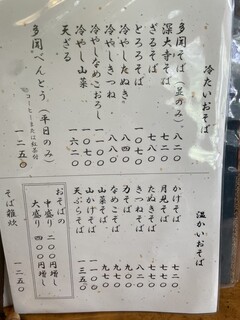 冷たいおそば
多聞そば（並のみ） 八二〇
深大寺そば
ざるそば 七八〇
とろろそば
冷やしきつね 八八〇
冷やしたぬき 八八〇
冷やしなめこおろし 一〇七〇
冷やし山菜 一〇七〇
天ざる 一六二〇
多聞べんとう（平日のみ）
コーヒーまたは紅茶付
一二五〇
温かいおそば
かけそば 七二〇
月見そば 七七〇
たぬきそば 七七〇
きつねそば 七七〇
力そば
なめこそば 九七〇
山菜そば 九七〇
山かけそば 一一〇〇
天ぷらそば 一三五〇
おそばの
中盛り 二〇〇円増し
大盛り 四〇〇円増し
そば雑炊 一二五〇